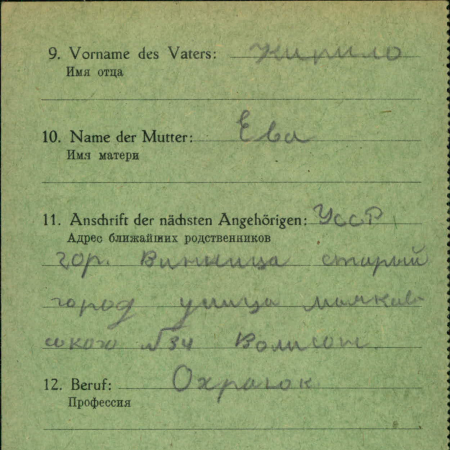 9. Vorname des Vaters: Кирило
Имя отца
10. Name der Mutter: Ева
Имя матери
11. Anschrift der nächsten Angehörigen: УССР,
Адрес ближайших родственников
гор. Винница старый
город улица маяков-
ского №34
12. Beruf:
Профессия